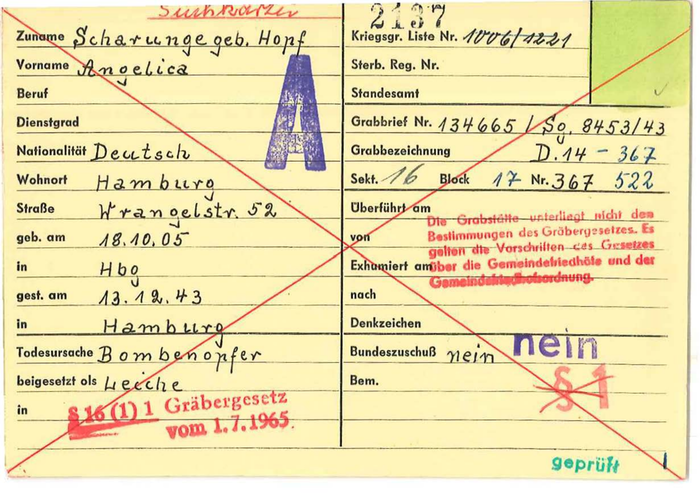 Suchkartei
2137
Zuname Scharunge geb. Hopf
Vorname Angelica
Beruf
Dienstgrad
Nationalität Deutsch
Wohnort Hamburg
Straße Wrangelstr. 52
geb. am 18.10.05
in Hbg
gest. am 13.12.43
in Hamburg
Todesursache Bombenopfer
beigesetzt als Leiche
in
§ 16 (1) 1 Gräbergesetz
vom 1.7.1965
A
Kriegsgr. Liste Nr. 1006/1221
Sterb. Reg. Nr.
Standesamt
Grabbrief Nr. 134665 / Sg. 8453/43
Grabbezeichnung D.14 - 367
Sekt. 16 Block 17 Nr. 367 522
Überführt am
von
Exhumiert am
nach
Die Grabstätte unterliegt nicht den
Bestimmungen des Gräbergesetzes. Es
gelten die Vorschriften des Gesetzes
über die Gemeindefriedhöfe und der
Gemeindefriedhofsordnung.
Denkzeichen
Bundeszuschuß nein nein
Bem.
§ 1
geprüft